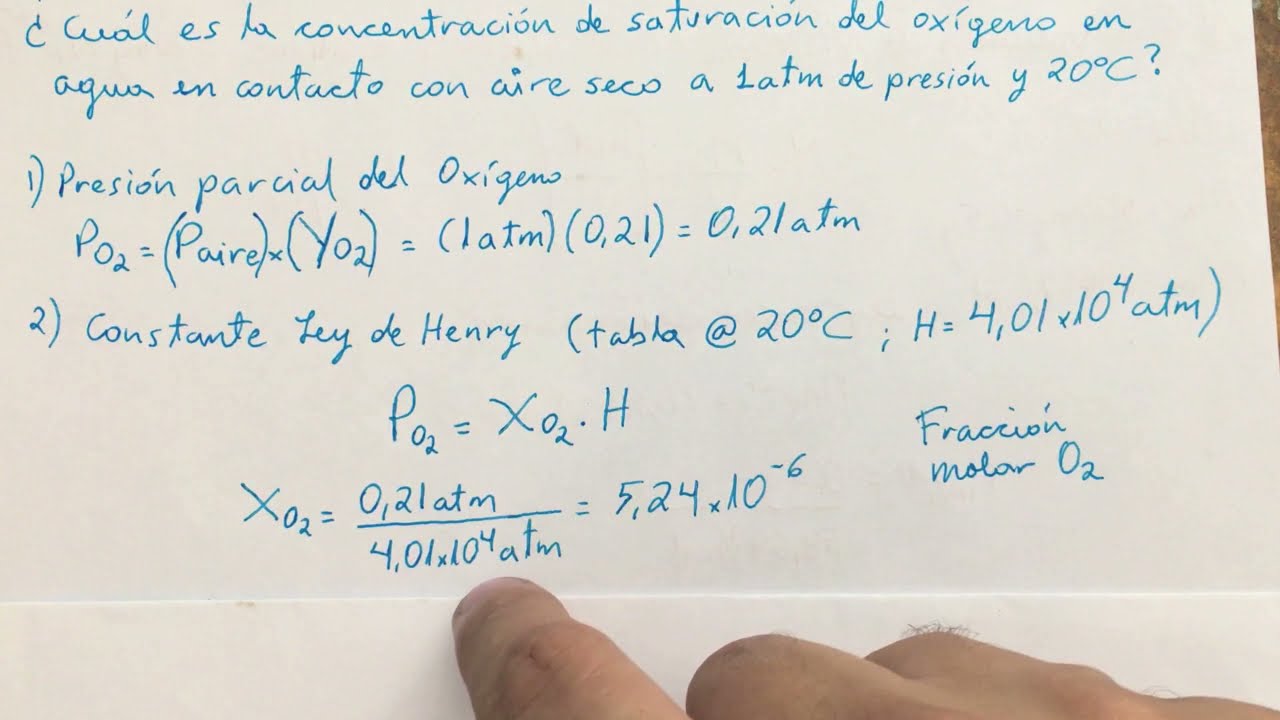 ¿Cuál es la concentración de saturación del oxígeno en
agua en contacto con aire seco a 1atm de presión y 20°C?
1) Presión parcial del Oxígeno
P_O₂ = (Paire)×(Y_O₂) = (1atm)(0,21) = 0,21atm
2) Constante Ley de Henry (tabla @ 20°C ; H= 4,01×10⁴atm)
P_O₂ = X_O₂ · H
Fracción
molar O₂
X_O₂ = 0,21atm / 4,01×10⁴atm = 5,24×10⁻⁶